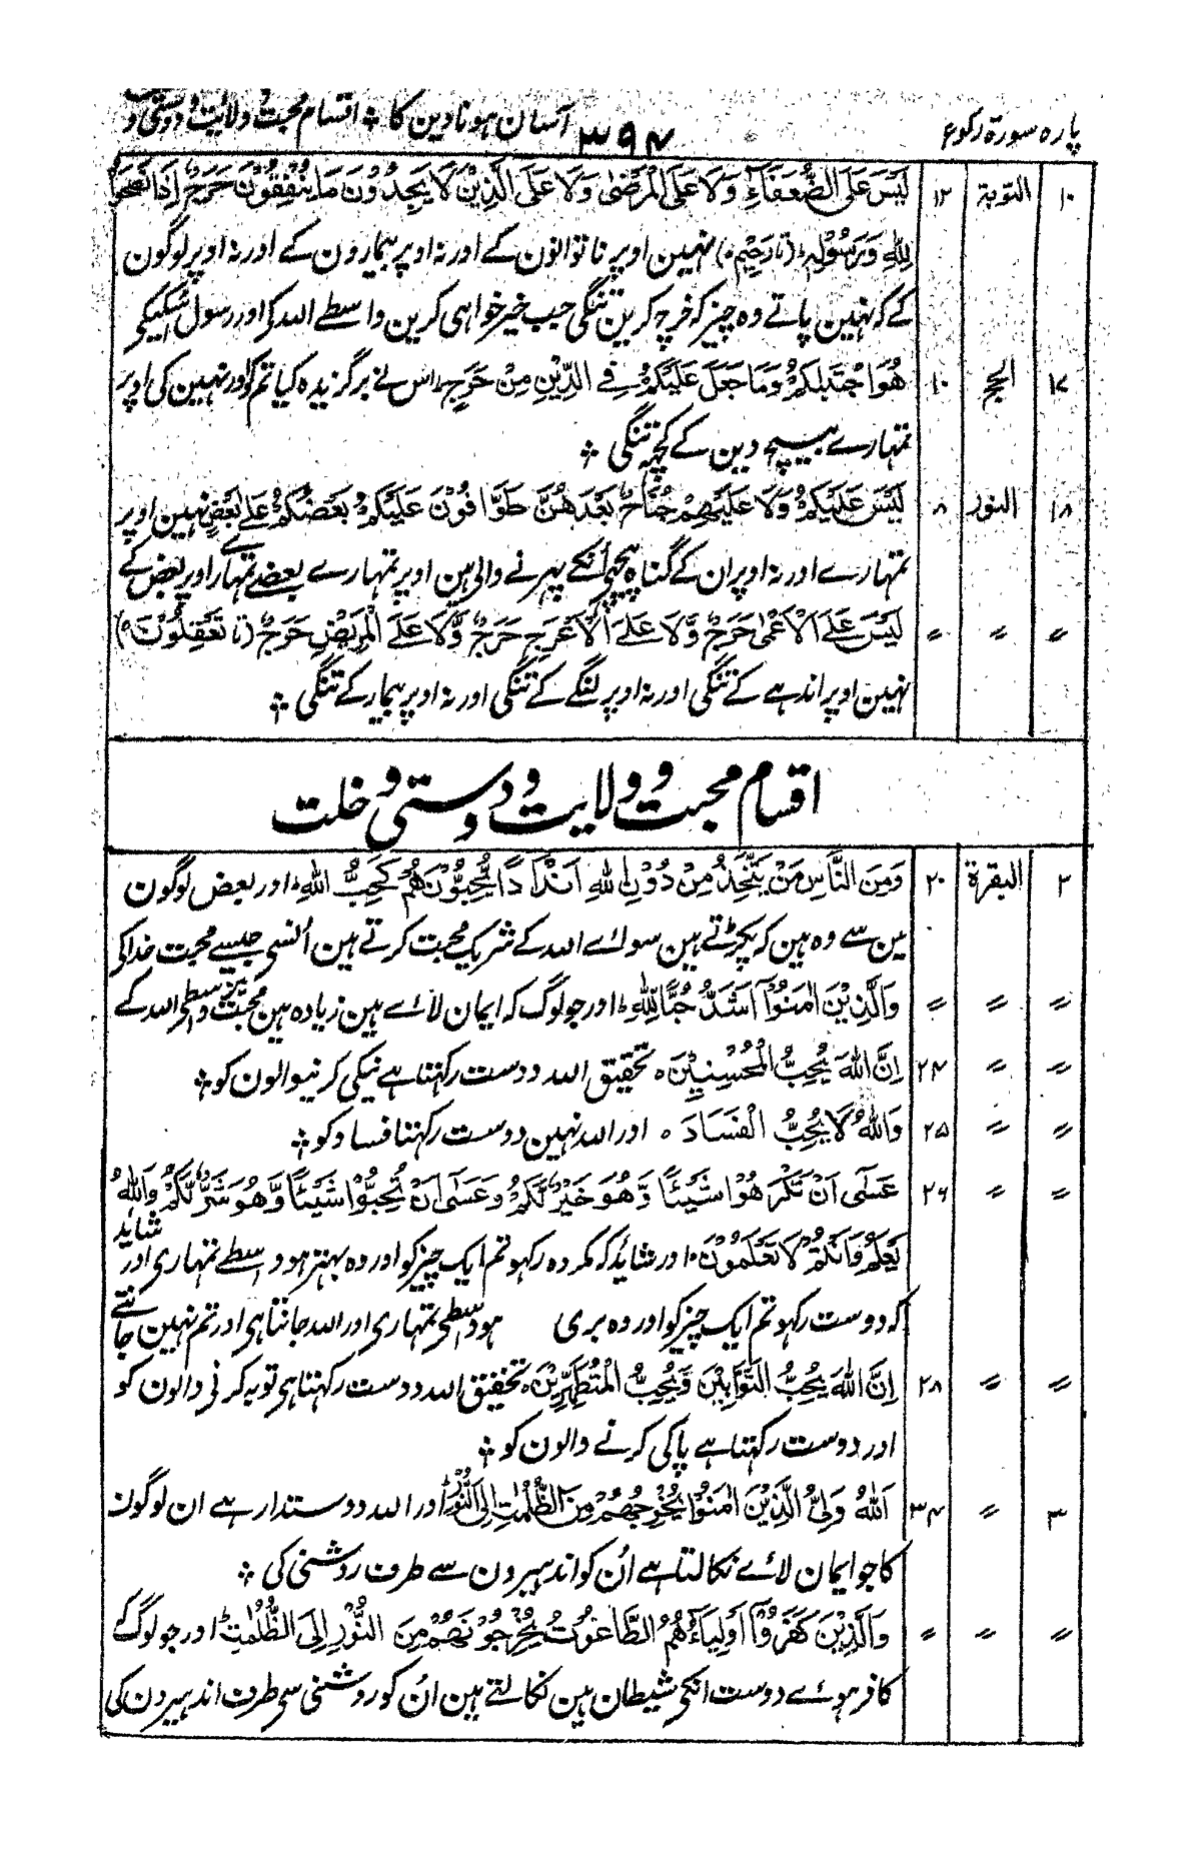 پارہ سورۃ رکوع ۳۹۴ آسان ہونا دین کا ؞ اقسام محبت و ولایت و دوستی و
۱۰ التوبۃ ۱۲ لَيْسَ عَلَى الضُّعَفَاءِ وَلَا عَلَى الْمَرْضٰى وَلَا عَلَى الَّذِيْنَ لَا يَجِدُوْنَ مَا يُنْفِقُوْنَ حَرَجٌ اِذَا نَصَحُوْا
لِلّٰهِ وَرَسُوْلِهٖ (تا رَحِيْم) نہین اوپر ناتوانون کے اور نہ اوپر بیمارون کے اور نہ اوپر لوگون
کے کہ نہین پاتے وہ چیز کہ خرچ کرین تنگی جب خیر خواہی کرین واسطے اللہ کی اور رسول
۱۷ الحج ۱۰ هُوَ اجْتَبٰىكُمْ وَمَا جَعَلَ عَلَيْكُمْ فِي الدِّيْنِ مِنْ حَرَجٍ اس نے برگزیدہ کیا تم کو اور نہین کی اوپر
تمہارے بیچ دین کے کچھ تنگی ؞
۱۸ النور ۸ لَيْسَ عَلَيْكُمْ وَلَا عَلَيْهِمْ جُنَاحٌ بَعْدَهُنَّ طَوَّافُوْنَ عَلَيْكُمْ بَعْضُكُمْ عَلٰى بَعْضٍ نہین اوپر
تمہارے اور نہ اوپر ان کے گناہ پیچھے اُنکے پہرنے والی ہین اوپر تمہارے بعضے تمہارے اوپر بعض کے
〃 〃 〃 لَيْسَ عَلَى الْاَعْمٰى حَرَجٌ وَّلَا عَلَى الْاَعْرَجِ حَرَجٌ وَّلَا عَلَى الْمَرِيْضِ حَرَجٌ (تا تَعْقِلُوْنَ)
نہین اوپر اندہے کے تنگی اور نہ اوپر لنگے کے تنگی اور نہ اوپر بیمار کے تنگی ؞
اقسام محبت و ولایت و دوستی و خلت
۲ البقرۃ ۲۰ وَمِنَ النَّاسِ مَنْ يَّتَّخِذُ مِنْ دُوْنِ اللّٰهِ اَنْدَادًا يُّحِبُّوْنَهُمْ كَحُبِّ اللّٰهِ اور بعض لوگون
مین سے وہ ہین کہ پکڑتے ہین سوائے اللہ کے شریک محبت کرتے ہین اُنسی جیسے محبت خدا کی
〃 〃 〃 وَالَّذِيْنَ اٰمَنُوْٓا اَشَدُّ حُبًّا لِّلّٰهِ اور جو لوگ کہ ایمان لائے ہین زیادہ ہین محبت مین واسطے اللہ کے
〃 〃 ۲۴ اِنَّ اللّٰهَ يُحِبُّ الْمُحْسِنِيْنَ ہ تحقیق اللہ دوست رکہتا ہے نیکی کرنیوالون کو ؞
〃 〃 ۲۵ وَاللّٰهُ لَا يُحِبُّ الْفَسَادَ ہ اور اللہ نہین دوست رکہتا فساد کو ؞
〃 〃 ۲۶ عَسٰٓى اَنْ تَكْرَهُوْا شَيْئًا وَّهُوَ خَيْرٌ لَّكُمْ وَعَسٰٓى اَنْ تُحِبُّوْا شَيْئًا وَّهُوَ شَرٌّ لَّكُمْ وَاللّٰهُ
يَعْلَمُ وَاَنْتُمْ لَا تَعْلَمُوْنَ اور شائد کہ مکروہ رکہو تم ایک چیز کو اور وہ بہتر ہو واسطے تمہاری اور شاید
کہ دوست رکہو تم ایک چیز کو اور وہ بری ہو واسطے تمہاری اور اللہ جانتا ہی اور تم نہین جانتے
〃 〃 ۲۸ اِنَّ اللّٰهَ يُحِبُّ التَّوَّابِيْنَ وَيُحِبُّ الْمُتَطَهِّرِيْنَ ہ تحقیق اللہ دوست رکہتا ہی توبہ کرنی والون کو
اور دوست رکہتا ہے پاکی کرنے والون کو ؞
۳ 〃 ۳۴ اَللّٰهُ وَلِيُّ الَّذِيْنَ اٰمَنُوْا يُخْرِجُهُمْ مِّنَ الظُّلُمٰتِ اِلَى النُّوْرِ اور اللہ دوستدار ہے ان لوگون
کا جو ایمان لائے نکالتا ہے اُن کو اندہیرون سے طرف روشنی کی ؞
〃 〃 〃 وَالَّذِيْنَ كَفَرُوْٓا اَوْلِيَآءُهُمُ الطَّاغُوْتُ يُخْرِجُوْنَهُمْ مِّنَ النُّوْرِ اِلَى الظُّلُمٰتِ اور جو لوگ کے
کافر ہوئے دوست انکی شیطان ہین نکالتے ہین اُن کو روشنی سی طرف اندہیرون کی